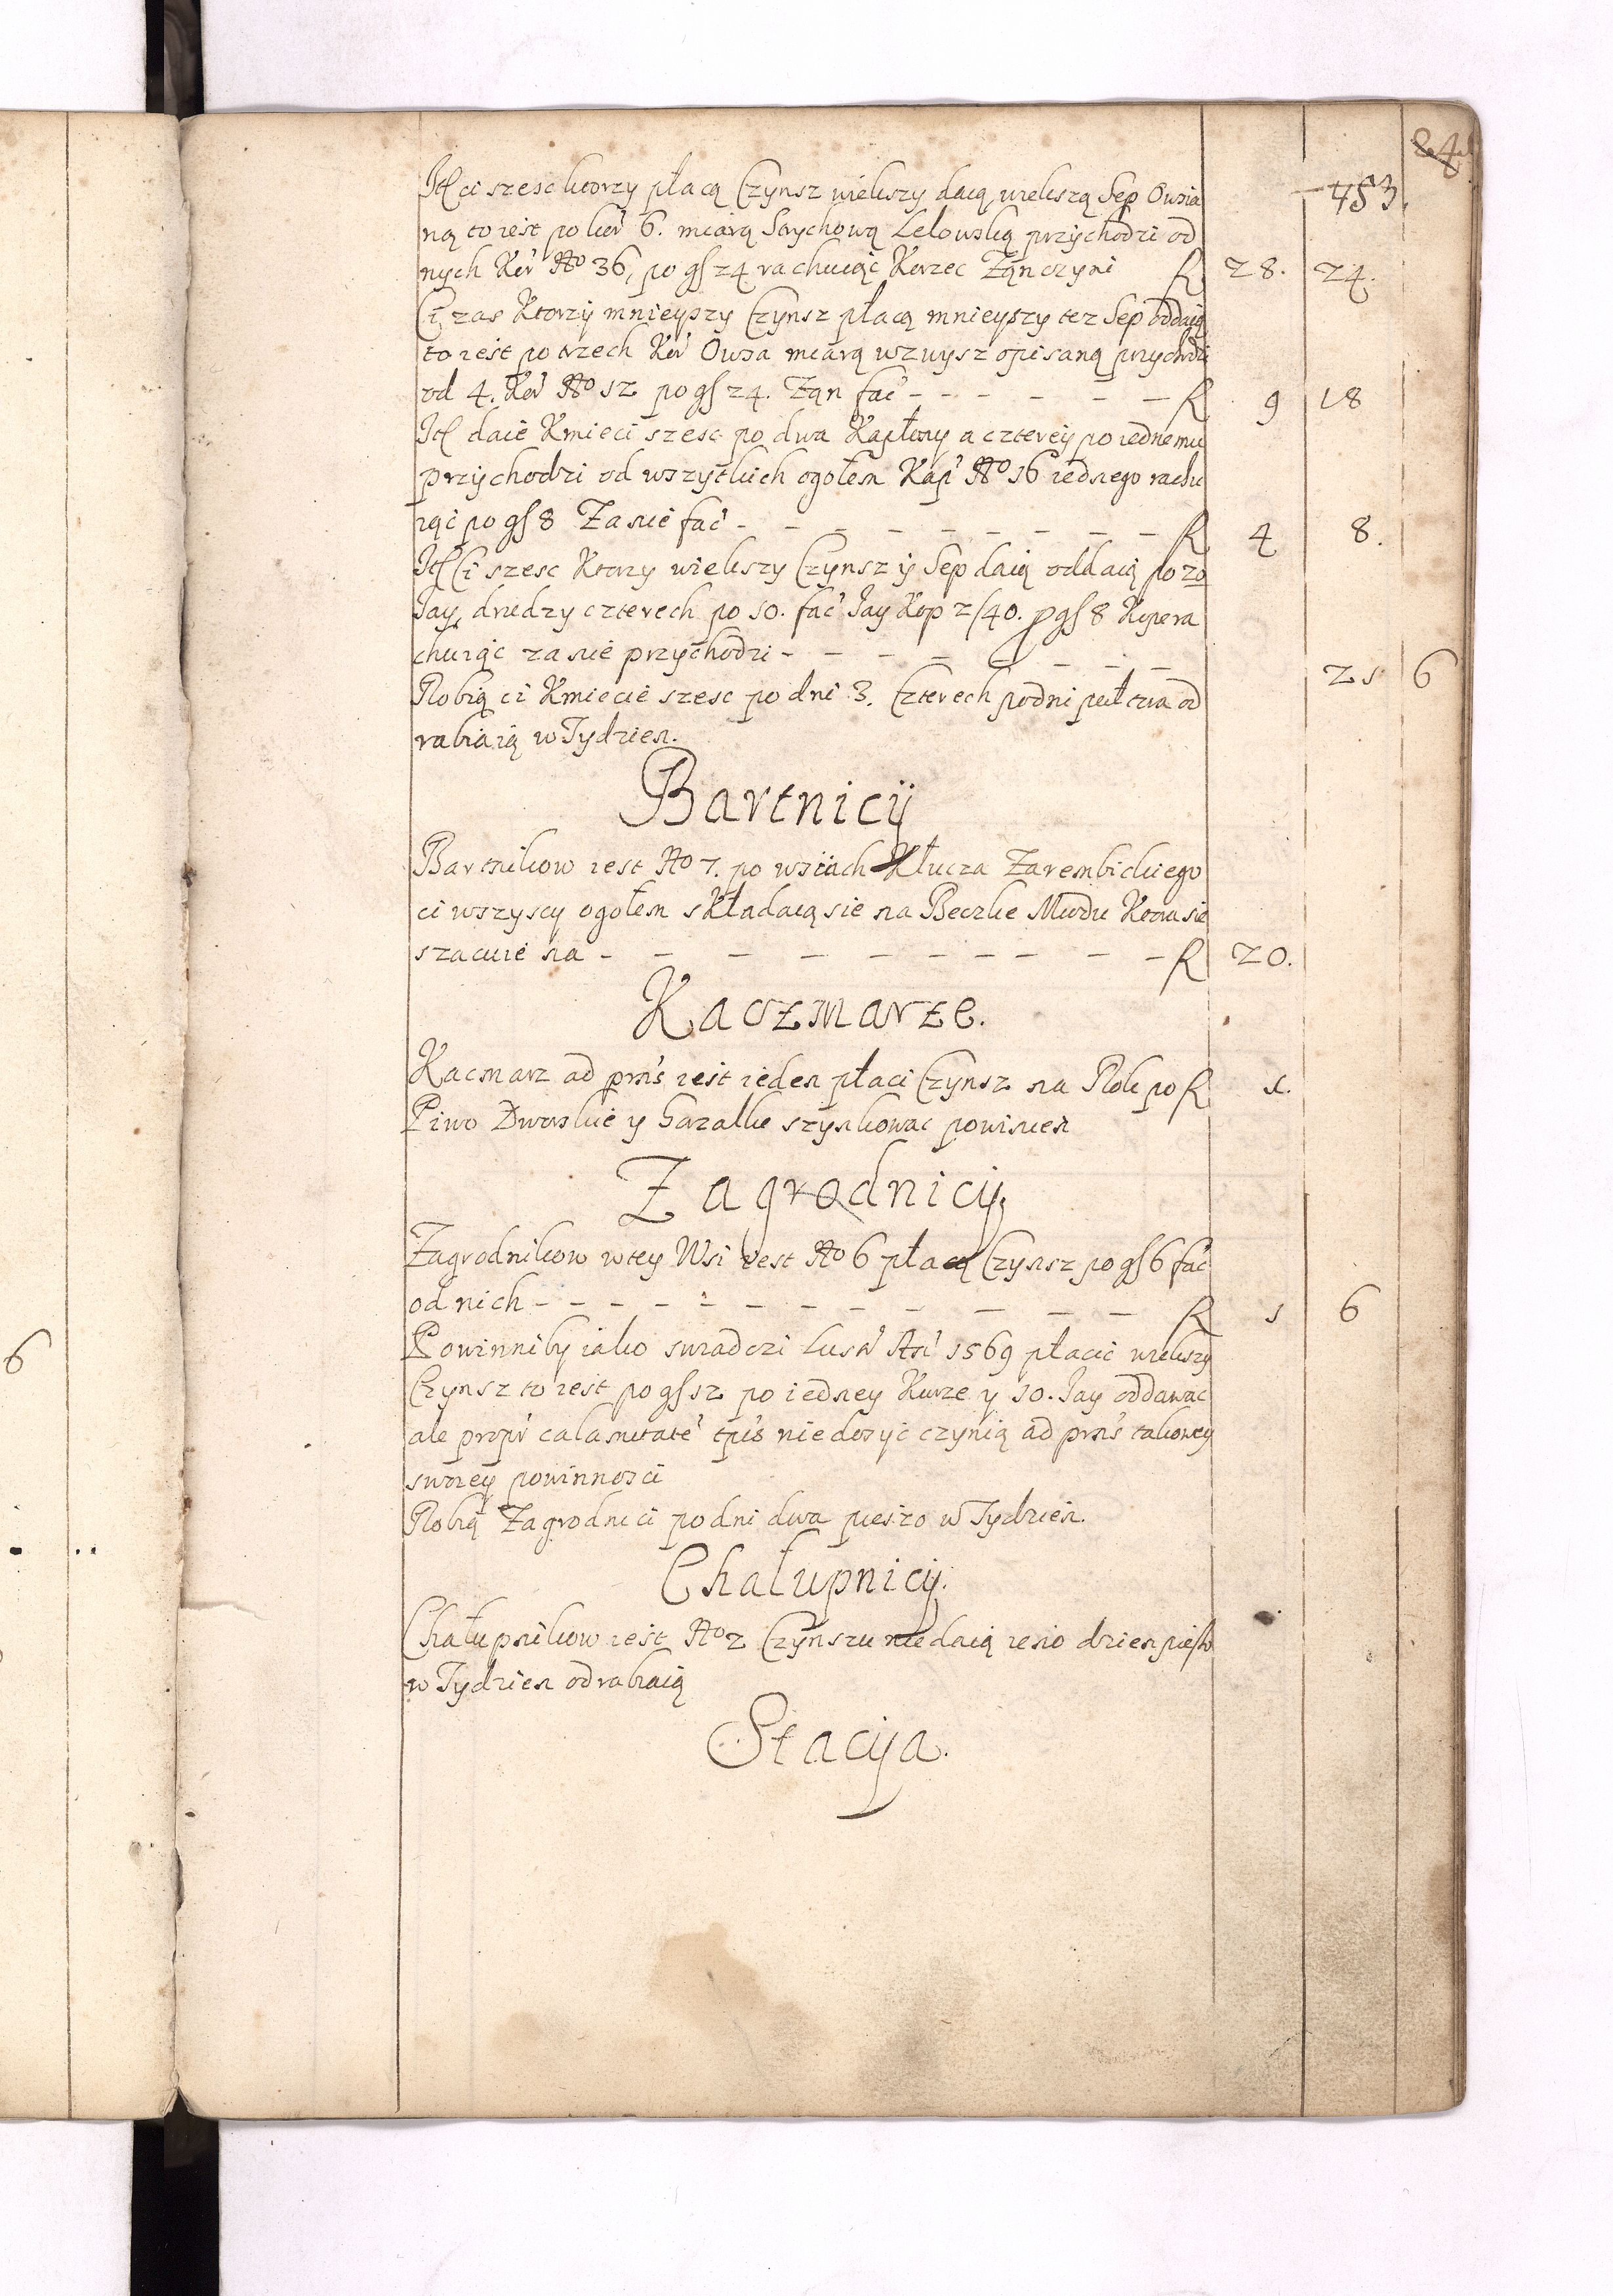 84
453.
Itẽ ci szesc ktorzy płacą Czynsz wiekszy daią wiekszą Sep Owsia
ną to iest po kor̃ 6. miarą Strychową Lelowską przychodzi od
nych Kor̃ No 36, po gſ 24 rachuiąc Korzec Zãn czyni R 28. 24.
Ci zas Ktorzy mnieyszy Czynsz płacą mnieyszy tez Sep oddaią
to iest po trzech Kor̃ Owsa miarą wzwysz opisaną przychodzi
od 4. Kor̃ No 12 po gſ 24. Zãn fac̃ - - - - - - R 9 18
Itẽ daie Kmieci szesc po dwa Kapłony a czterey po iednemu
przychodzi od wszytkich ogołem Kap̃ No 16 iednego rachu
iąc po gſ 8 Za nie fac̃ - - - - - - - - - R 4 8.
Itẽ Ci szesc Ktorzy wiekszy Czynsz y Sep daią oddaią po 20
Jay, drudzy czterech po 10. fac̃ Jay Kop 2/40. p gſ 8 Kope ra
chuiąc za nie przychodzi - - - - - - - - 21 6
Robią ci Kmiecie szesc po dni 3. Czterech po dni puł tora od
rabiaią w Tydzien.
Bartnicÿ
Bartnikow iest No 7. po wsiach Klucza Zarembickiego
ci wszyscy ogołem składaią sie na Beczke Miodu Ktora sie
szacuie na - - - - - - - - - - R 20.
Kaczmarze.
Kacmarz ad prns̃ iest ieden płaci Czynsz na Rok po R 1.
Piwo Dworskie y Gorzalke szynkowac powinien
Zagrodnicy.
Zagrodnikow w tey Wsi iest No 6 płacą Czynsz po gſ 6 fac̃
od nich - - - - - - - - - - - R 1 6
Powinniby iako swiadczi Lustr̃ An̄i 1569 płacic wiekszy
Czynsz to iest po gſ 12 po iedney Kurze y 10. Jay oddawac
ale propr̃ calamitatẽ tpis̃ niedosyc czynią ad prns̃ takowey
swoiey powinnosci
Robią Zagrodnici po dni dwa pieszo w Tydzien.
Chałupnicy.
Chałupnikow iest No 2 Czynszu nie daią ieno dzien pieszo
w Tydzien odrabiaią
Stacya.
6